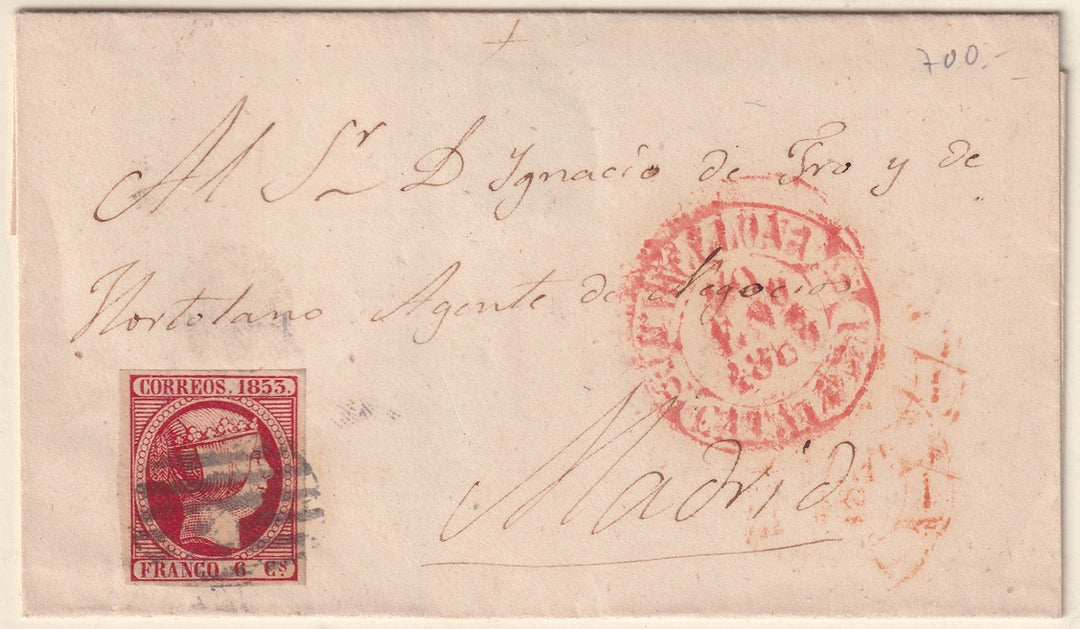 700.-
Al Sr D Ignacio de Fro y de
Hortolano Agente de Negocios
Madrid
CORREOS. 1853.
FRANCO 6 Cs
CATALUÑA